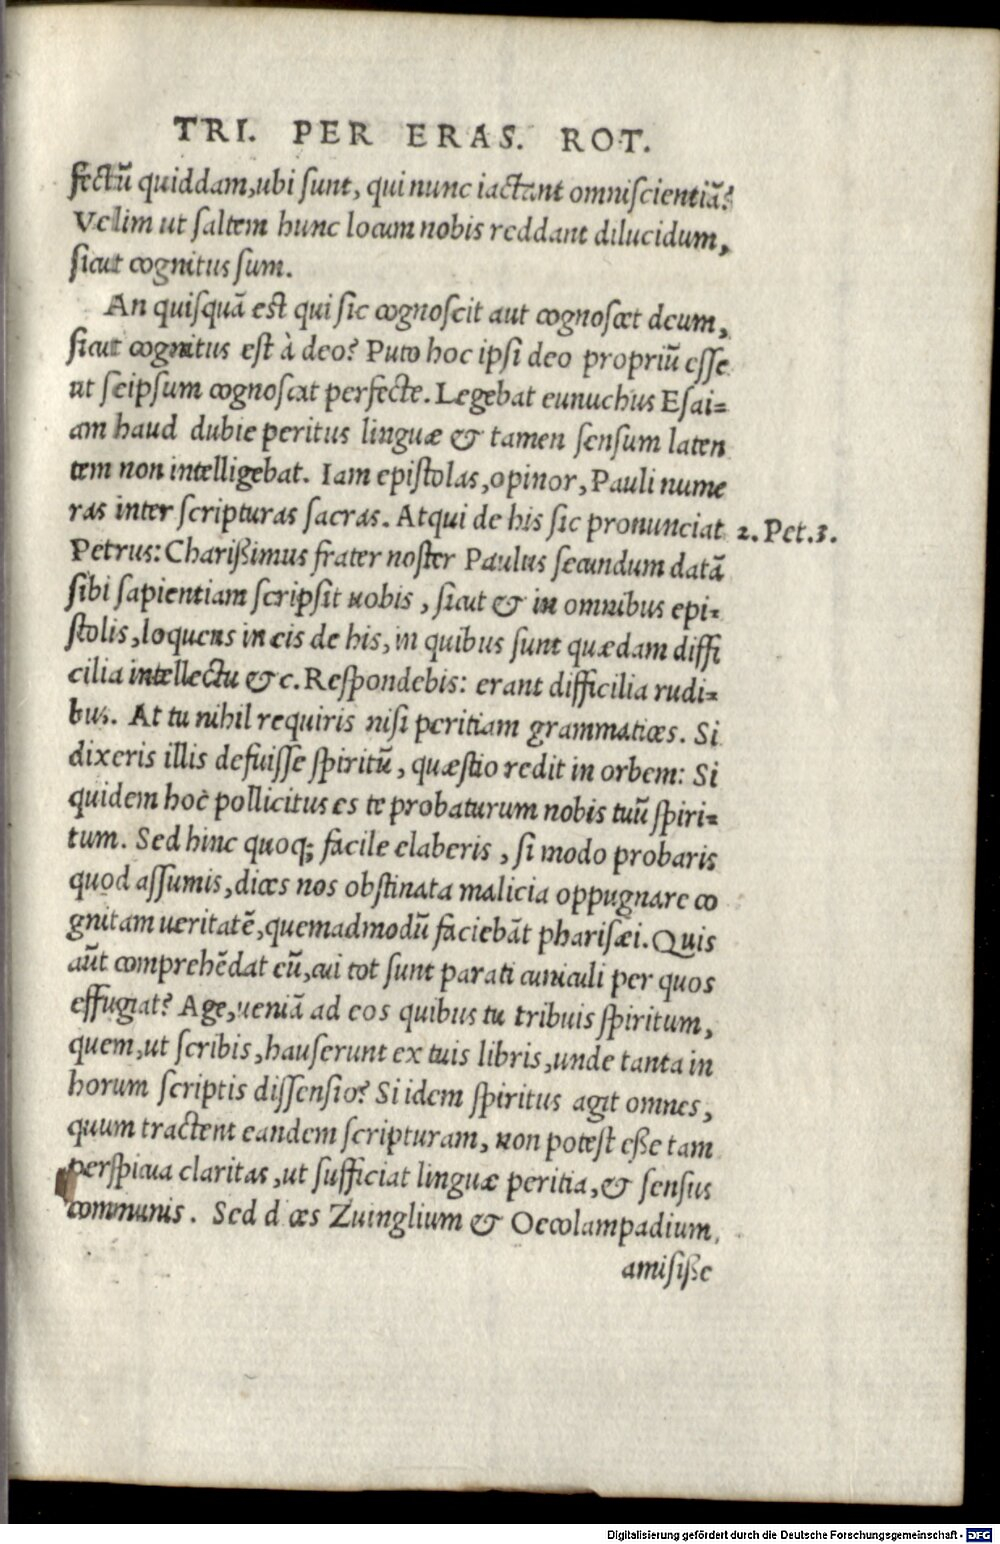 TRI. PER ERAS. ROT.
fectū quiddam, ubi sunt, qui nunc iactant omniscientiā?
Velim ut saltem hunc locum nobis reddant dilucidum,
sicut cognitus sum.
An quisquā est qui sic cognoscit aut cognoscet deum,
sicut cognitus est à deo? Puto hoc ipsi deo propriū esse
ut seipsum cognoscat perfecte. Legebat eunuchus Esai=
am haud dubie peritus linguæ & tamen sensum laten
tem non intelligebat. Iam epistolas, opinor, Pauli nume
ras inter scripturas sacras. Atqui de his sic pronunciat
2. Pet. 3.
Petrus: Charißimus frater noster Paulus secundum datā
sibi sapientiam scripsit uobis, sicut & in omnibus epi=
stolis, loquens in eis de his, in quibus sunt quædam diffi
cilia intellectu &c. Respondebis: erant difficilia rudi=
bus. At tu nihil requiris nisi peritiam grammatices. Si
dixeris illis defuisse spiritū, quæstio redit in orbem: Si
quidem hoc pollicitus es te probaturum nobis tuū spiri=
tum. Sed hinc quoq; facile elaberis, si modo probaris
quod assumis, dices nos obstinata malicia oppugnare co
gnitam ueritatē, quemadmodū faciebāt pharisæi. Quis
aūt comprehēdat eū, cui tot sunt parati cuniculi per quos
effugiat? Age, ueniā ad eos quibus tu tribuis spiritum,
quem, ut scribis, hauserunt ex tuis libris, unde tanta in
horum scriptis dissensio? Si idem spiritus agit omnes,
quum tractent eandem scripturam, non potest eße tam
perspicua claritas, ut sufficiat linguæ peritia, & sensus
communis. Sed d ces Zuinglium & Oecolampadium,
amisiße
Digitalisierung gefördert durch die Deutsche Forschungsgemeinschaft - DFG